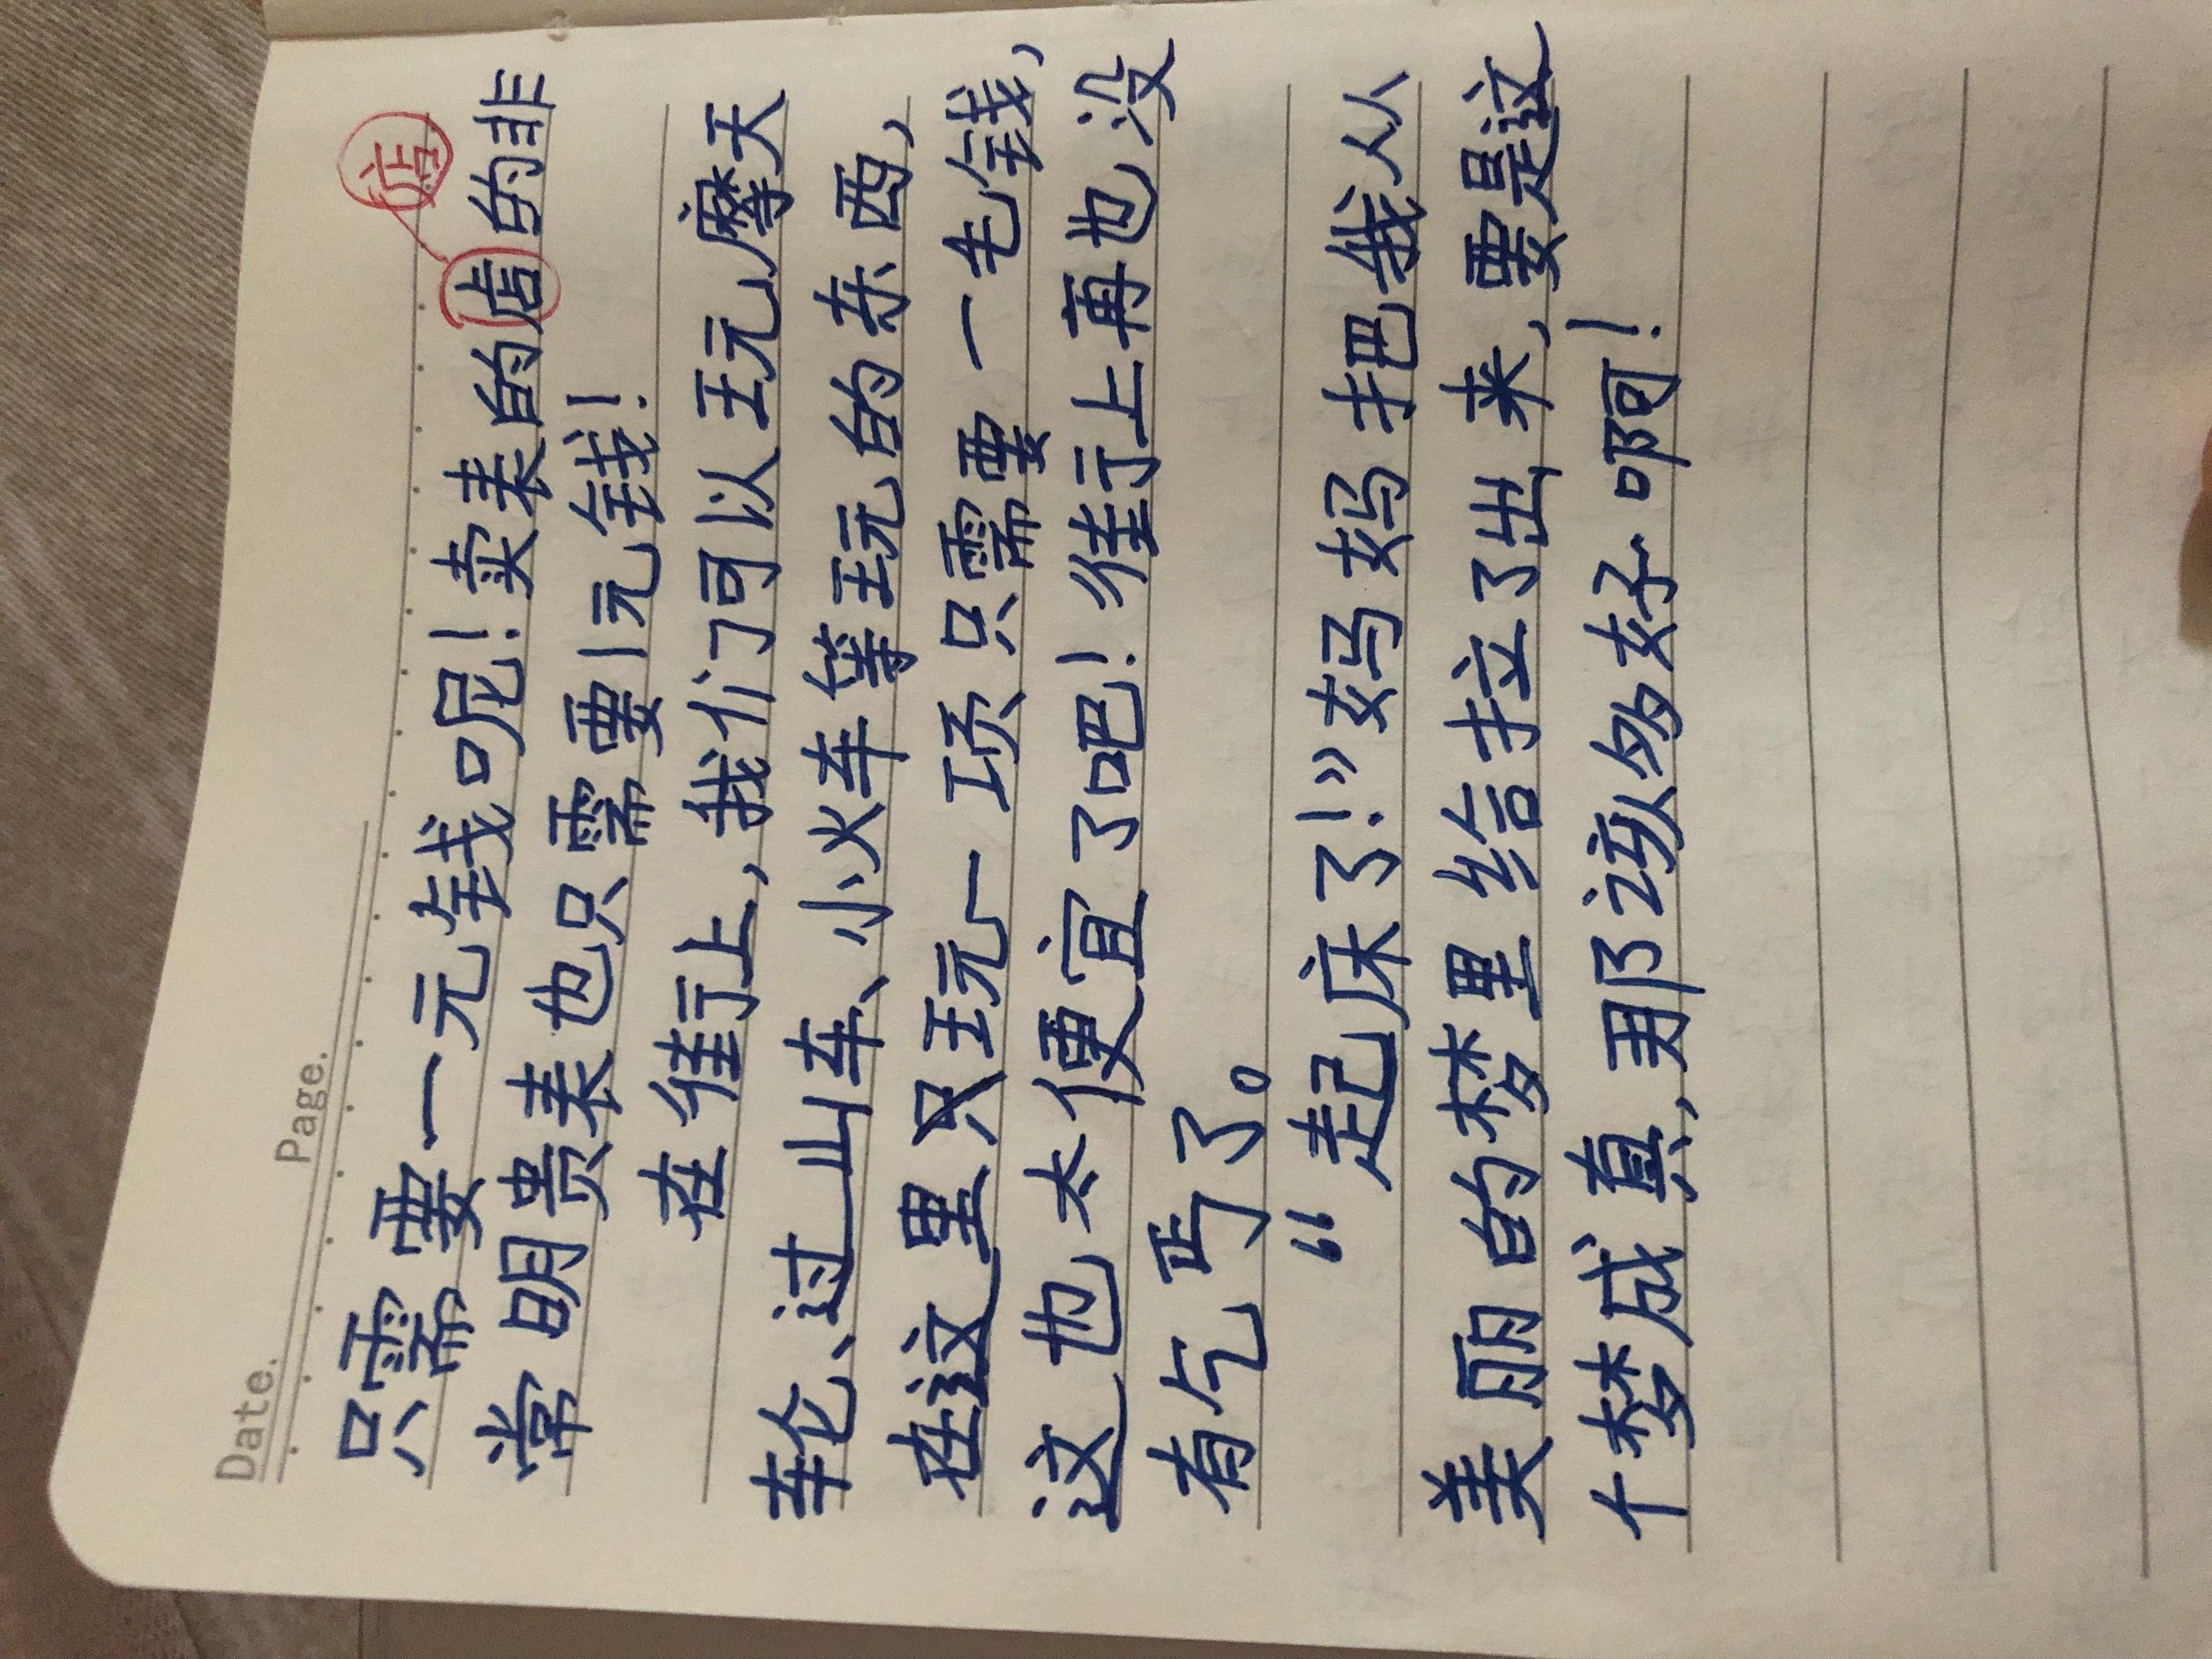 Date.    Page.
店
只需要一元钱呢！卖表的店的非
常明贵表也只需要1元钱！
在街上，我们可以玩摩天
轮、过山车、小火车等玩的东西，
在这里只玩一项只需要一毛钱，
这也太便宜了吧！街上再也没
有乞丐了。
“起床了！”妈妈把我从
美丽的梦里给拉了出来，要是这
个梦成真，那该多好啊！